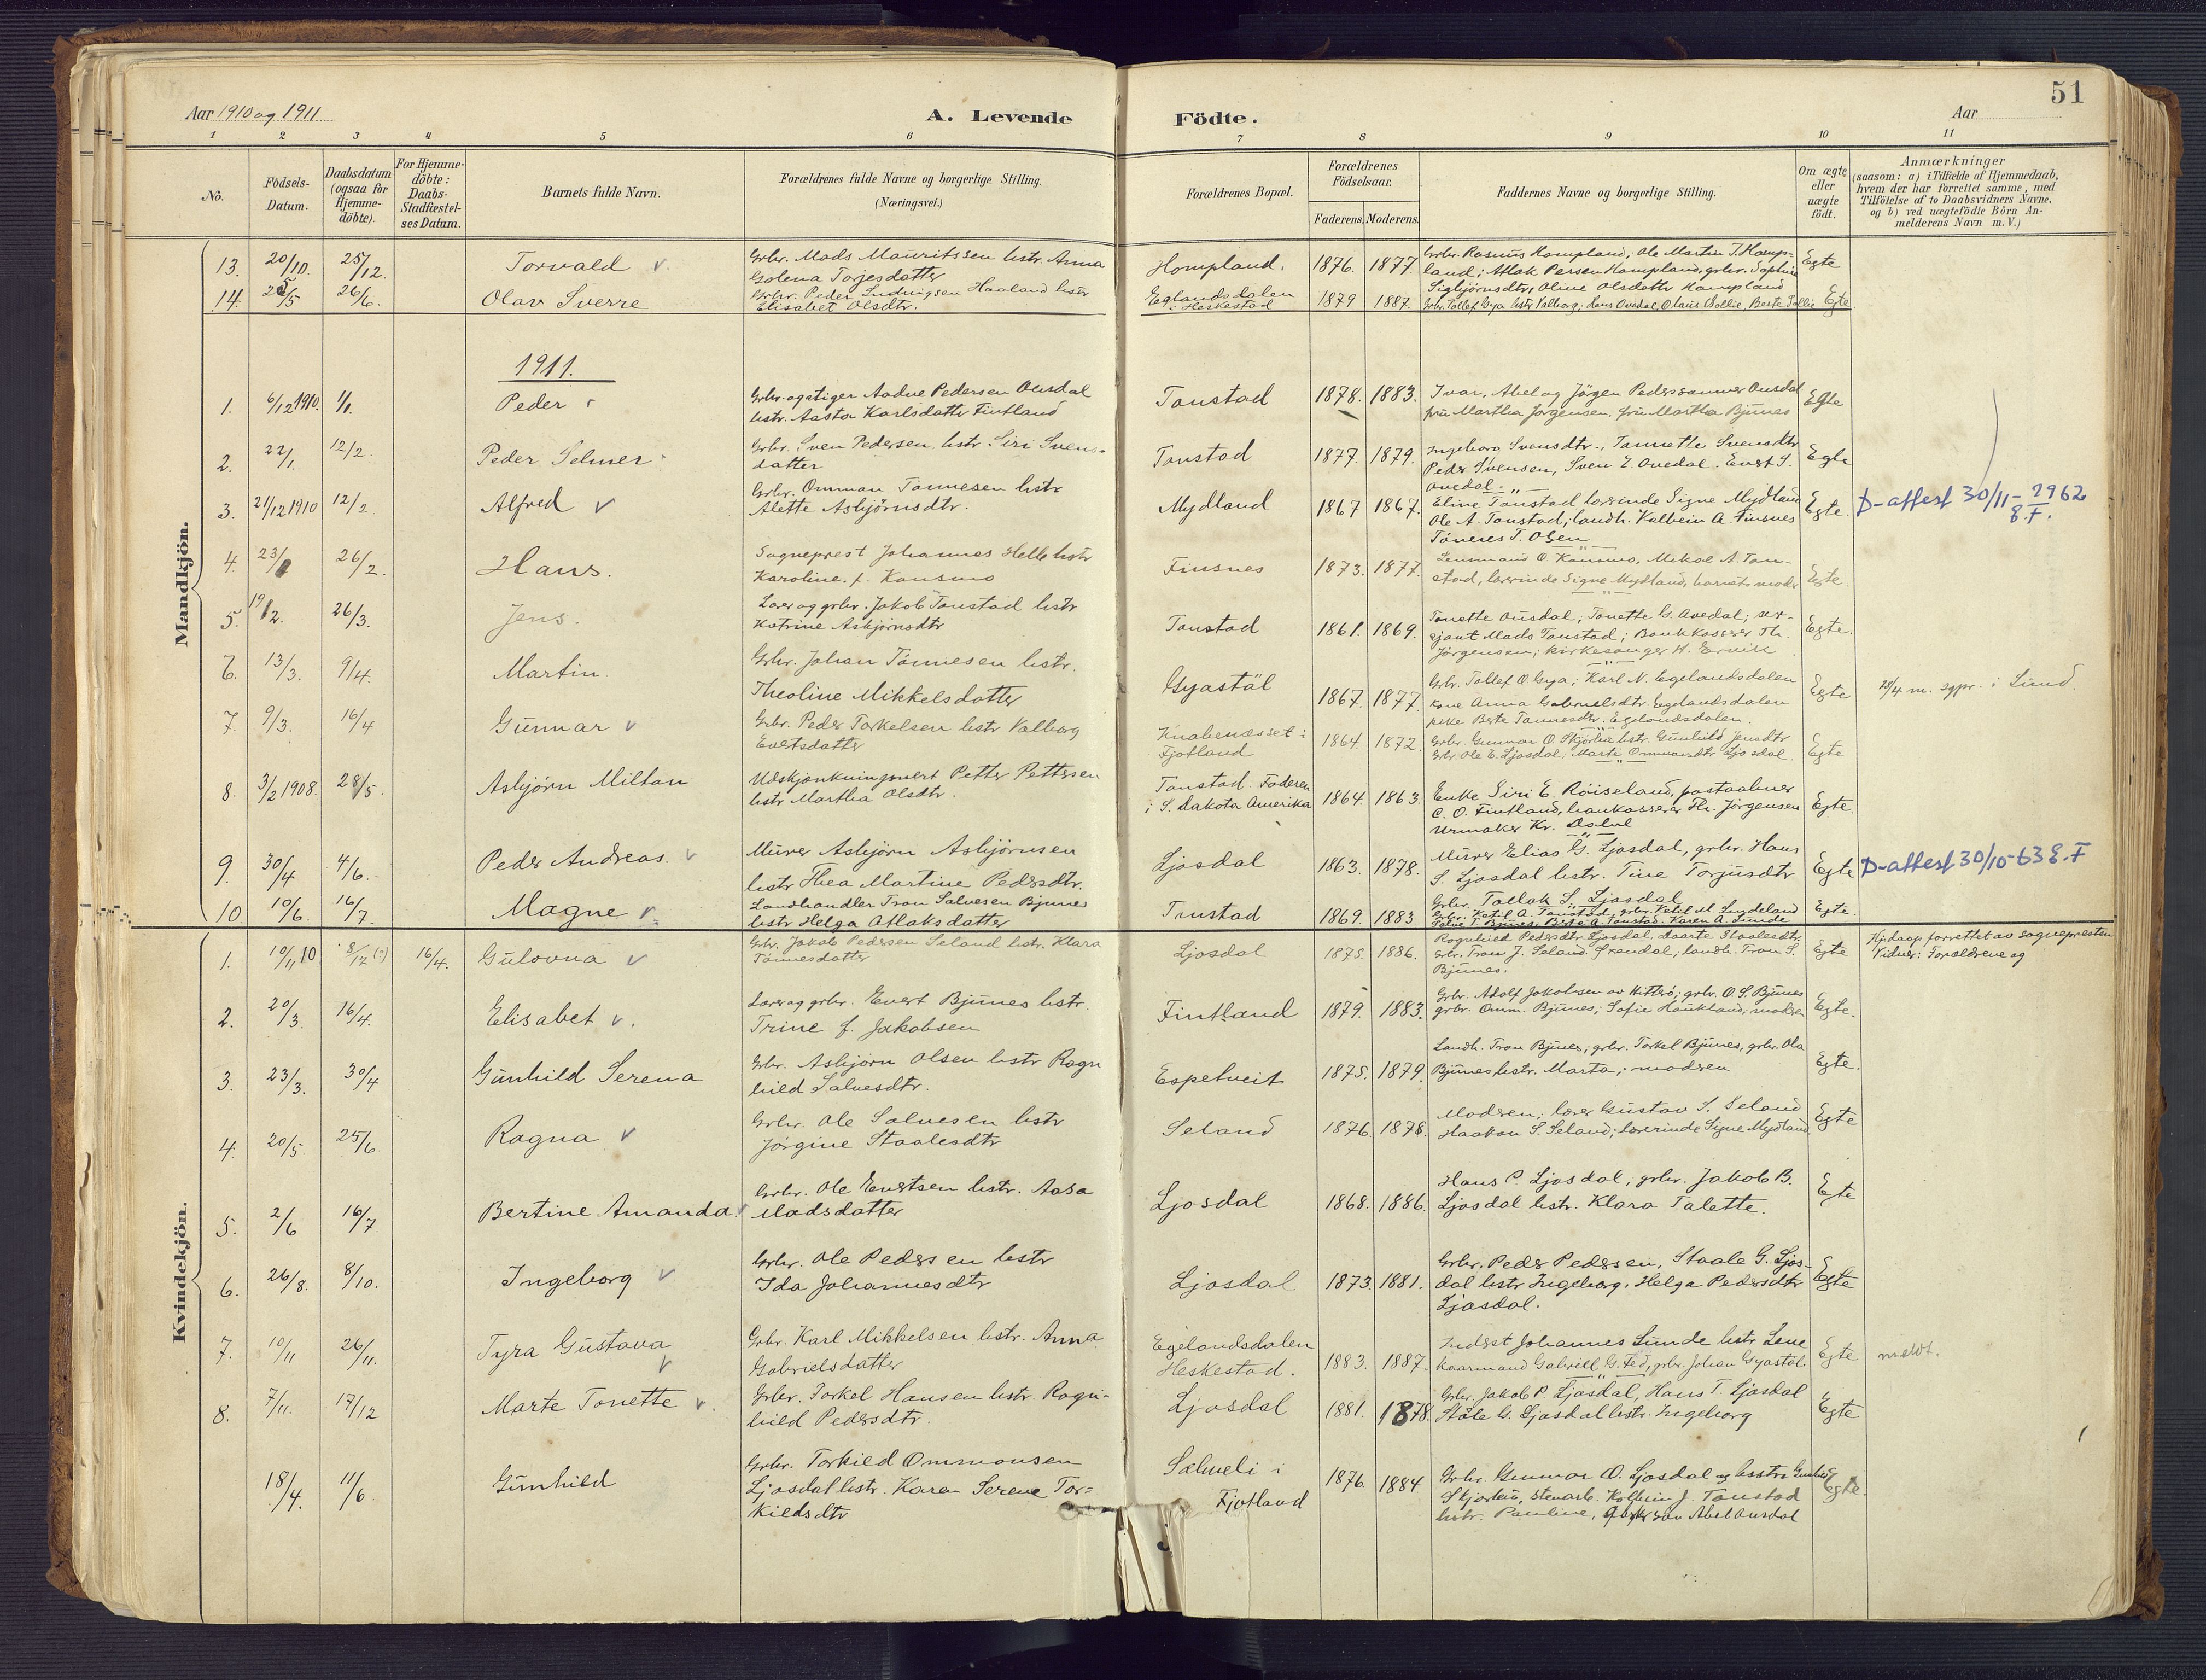 Aar 1910 og 1911
A. Levende
Födte.
Aar
51
1 2 3 4 5 6 7 8 9 10 11
No.
Födsels-Datum.
Daabsdatum (ogsaa for Hjemme-döbte).
For Hjemme-döbte: Daabs-Stadfæstel-ses Datum.
Barnets fulde Navn.
Forældrenes fulde Navne og borgerlige Stilling. (Næringsvei.)
Forældrenes Bopæl.
Forældrenes Födselsaar.
Faderens. Moderens.
Faddernes Navne og borgerlige Stilling.
Om ægte eller uægte födt.
Anmærkninger
(saasom: a) i Tilfælde af Hjemmedaab,
hvem der har forrettet samme, med
Tilföielse af to Daabsvidners Navne,
og b) ved uægtefödte Börn An-
melderens Navn m.V.)
Mandkjön.
13. 20/10. 25/12. Torvald v. Grbr. Mads Mauritssen hstr. Anna
Golena Torjesdatter
Hompland. 1876. 1877. Grbr. Rasmus Hompland; Ole Martin T. Homp-
land; Atlak Persen Hompland, grbr. Sophie
Sigbjørnsdtr, Oline Olsdatter Hompland
Egte
14. 26/6. Olav Sverre Grbr. Peder Ludvigsen Haaland hstr
Elisabet Olsdtr.
Eglandsdalen
i Heskestad 1879 1887. Grbr. Tollef Gya hstr Valborg, Hans Ovedal, Olaus Sollie, Berte Sollie Egte
1911.
1. 6/12 1910. 1/1. Peder Grbr. og stiger Aadne Pedersen Ousdal
hstr. Aasta Karlsdatter Fintland
Tonstad 1878. 1883. Ivar, Abel og Jörgen Pederssönner Ousdal
fru Martha Jorgensen, fru Martha Bjunes
Egte
2. 22/1. 12/2. Peder Selmer Grbr. Sven Pedersen hstr. Siri Svens-
datter
Tonstad 1877. 1879. Ingeborg Svensdtr., Tannette Svensdtr
Peder Svensen, Sven E. Ovedal. Evert S.
Ovedal.
Egte
3. 21/12 1910 12/2. Alfred v Grbr. Omman Tønnesen hstr
Alette Asbjörnsdtr.
Mydland 1867 1867. Eline Tonstad lærerinde Signe Mydland
Ole A. Tonstad; landh. Kolbein A. Finsnes
Tönnes T. Olsen
Egte. D-attest 30/11-1962
E.F.
4. 23/ 26/2. Hans. Sogneprest Johannes Helle hstr
Karoline. f. Konsmo
Finsnes 1873. 1877. Lensmand O. Konsmo, Mikal A. Ton-
stad, lærerinde Signe Mydland, barnets moder
Egte.
5. 19/2. 26/3. Jens. Lærer og grbr. Jakob Tonstad hstr
Katrine Asbjörnsdtr
Tonstad 1861. 1869. Tonette Ousdal; Tonette G. Ovedal; ser-
sjant Mads Tonstad; Bankkasserer Th.
Jörgensen; kirkesanger H. Ervik
Egte.
6. 13/3. 9/4. Martin. Grbr. Johan Tönnesen hstr.
Theoline Mikkelsdatter
Gyastöl 1867. 1877. Grbr. Tollef O. Gya; Karl N. Egelandsdalen
kone Anna Gabrielsdtr. Egelandsdalen
pike Berte Tannesdtr. Egelandsdalen.
Egte 28/4 m. sgpr. i Lund.
7. 9/3. 16/4 Gunnar v Grbr. Peder Torkelsen hstr Valborg
Evertsdatter
Knabenæsset i
Fjotland 1864. 1872. Grbr. Gunnar O. Skjørlia hstr. Gunhild Jensdtr
Grbr. Ole E. Ljosdal; Marte Ommundsdtr Ljosdal.
Egte
8. 3/2 1908. 28/5. Asbjörn Milton Udskjenkningsvert Petter Pettersen
hstr Martha Olsdtr.
Tonstad. Faderen
i S. Dakota Amerika 1864. 1863. Enke Siri E. Röiseland, postaabner
C. O. Fintland, bankkasserer Th. Jörgensen
Urmaker Kr.
Egte.
9. 30/4 4/6. Peder Andreas. v Murer Asbjörn Asbjörnsen
hstr Thea Martine Pedersdtr.
Ljosdal 1863. 1878. Murer Elias G. Ljosdal, grbr. Hans
S. Ljosdal hstr. Tine Torjusdtr
Egte D-attest 30/10-63 E.F
10. 10/6. 16/7. Magne v. Landhandler Tron Salvesen Bjunes
hstr Helga Atlaksdatter
Tonstad 1869. 1883 Grbr. Tollak S. Ljosdal
Grbr. Ketil A. Tonstad, grbr. Ketil M. Lindeland
Salve T. Bjunes, Berte A. Tonstad. Karen A. Lunde
Egte.
Kvindekjön.
1. 10/11 10 8/12 (?) 16/4. Gulovna v Grbr. Jakob Pedersen Seland hstr. Klara
Tönnesdatter
Ljosdal 1875. 1886. Ragnhild Pedersdtr Ljosdal, Marte Staalesdtr.
Grbr. Tron J. Seland, landh. Tron S.
Bjunes.
Egte Hj.daap forrettet av sognepresten
Vidner: Forældrene og
2. 20/3. 16/4. Elisabet v. Lærer og grbr. Evert Bjunes hstr.
Trine f. Jakobsen
Fintland 1879. 1883. Grbr. Adolf Jakobsen av Hitterö; grbr. O. S. Bjunes
grbr. Omm. Bjunes; Sofie Haukland; moderen
Egte.
3. 23/3. 30/4 Gunhild Serena Grbr. Asbjörn Olsen hstr Ragn
hild Salvesdtr.
Espetveit 1875. 1879. Landh. Tron Bjunes; grbr. Torkel Bjunes, grbr. Ola
Bjunes hstr. Marta; modren
Egte.
4. 20/5. 25/6. Ragna v Grbr. Ole Salvesen hstr
Jörgine Staalesdtr
Seland 1876. 1878. Modren; lærer Gustav S. Seland
Haakon S. Seland; Lærerinde Signe Mydland.
Egte
5. 2/6 16/7 Bertine Amanda. v Grbr. Ole Evertsen hstr. Aasa
Madsdatter
Ljosdal 1868. 1886. Hans P. Ljosdal, grbr. Jakob B.
Ljosdal hstr. Klara Talette.
Egte
6. 26/8. 8/10. Ingeborg v Grbr. Ole Pedersen hstr
Ida Johannesdtr
Ljosdal 1873. 1881. Grbr. Peder Pedersen, Staale G. Ljos-
dal hstr Ingeborg. Helga Pedersdtr
Ljosdal.
Egte
7. 10/11 26/11. Tyra Gustava v Grbr. Karl Mikkelsen hstr. Anna
Gabrielsdatter
Egelandsdalen
Heskestad. 1883. 1887. Inderst Johannes Lunde hstr Lene
Kaarmand Gabriell G. Fed, grbr. Johan Gyastöl.
Egte meldt.
8. 7/11. 17/12 Marte Tonette v. Grbr. Torkel Hansen hstr. Ragn-
hild Pedersdtr.
Ljosdal 1881. 1878. Grbr. Jakob P. Ljosdal, Hans T. Ljosdal
Ståle G. Ljosdal hstr. Ingeborg
Egte
18/4. 11/6. Gunhild Grbr. Torkild Ommonsen
Ljosdal hstr. Karen Serene Tor-
kildsdtr
Salmeli i
Fjotland 1876. 1884. Grbr. Gunnar O. Ljosdal og hustru Gunhild
Skjorlia, stenarb. Kolbein J. Tonstad
hstr. Pauline, Abel Ousdal
Egte.